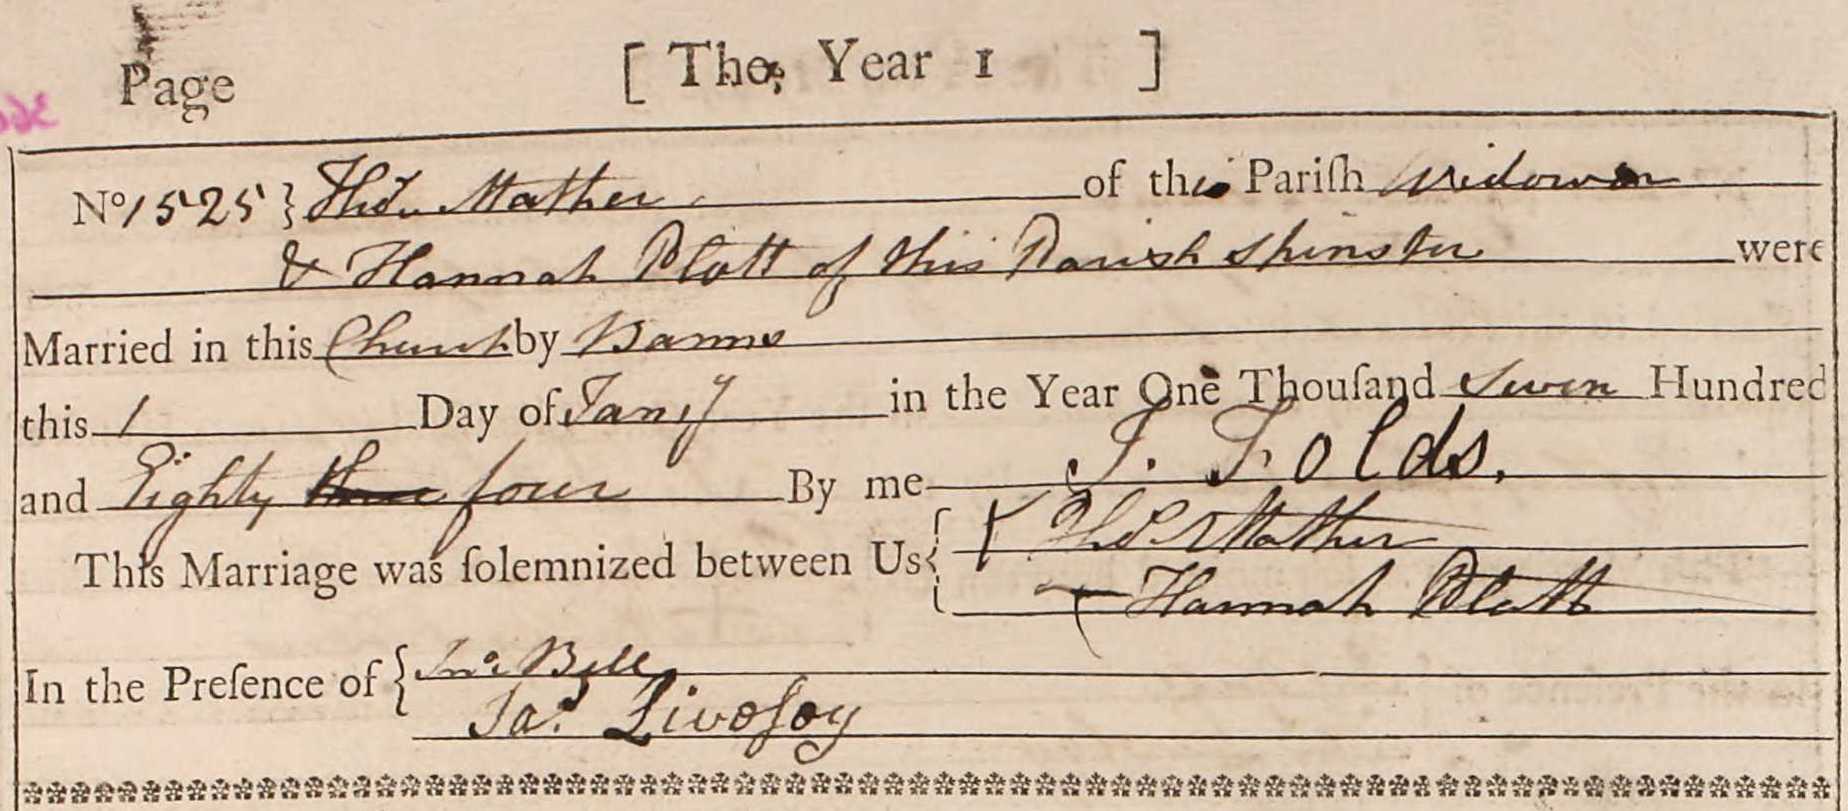 Page [ The Year 1 ]
No 1525 } Thos. Mather of this Pariſh Widower
& Hannah Platt of this Parish Spinster were
Married in this Church by Banns
this 1 Day of Jany in the Year One Thouſand Seven Hundred
and Eighty three four By me J. Folds.
This Marriage was ſolemnized between Us { X Thos Mather
X Hannah Platt
In the Preſence of { Jno. Bell
Jas. Liveſey